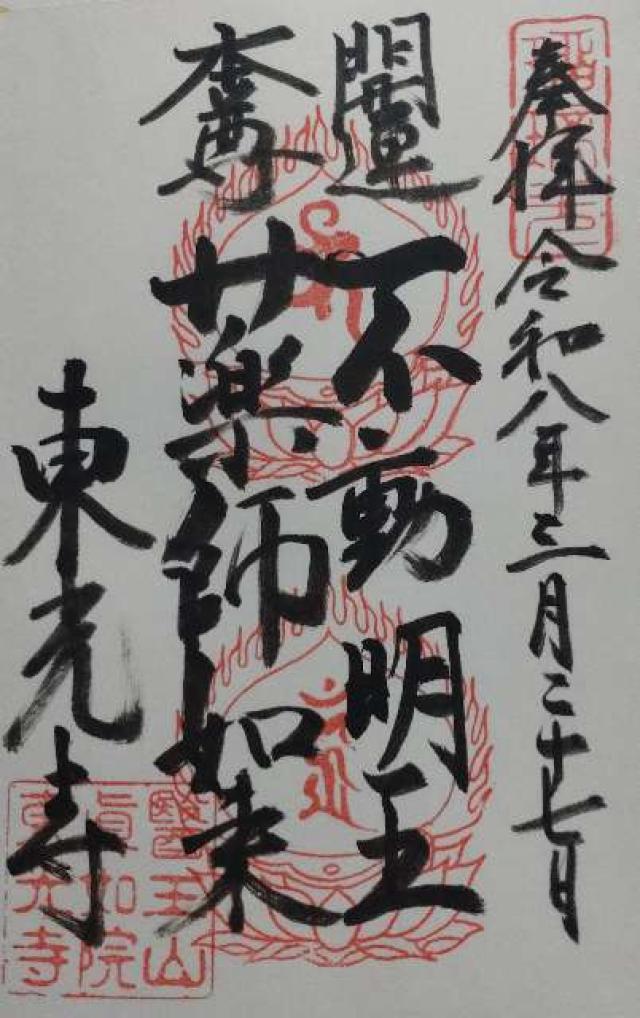 奉拝 令和八年三月二十七日
開運 不動明王
本尊 薬師如来
東光寺
醫王山
眞如院
東光寺